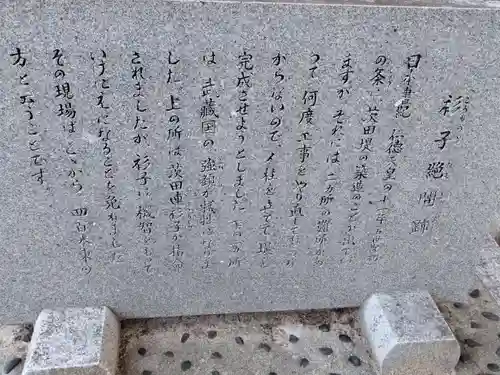 衫子絶間跡
日本書紀 仁徳天皇の十一年十月
の条に茨田堤の築造のことが出て
ますが、それには二カ所の難所があ
って何度工事をやり直しても
からないので人柱を立てて堤を
完成させようとしました 一方の所
は武蔵国の強頸が
した。上の所は茨田連衫子が
されましたが衫子は機智をもって
いけにえになることを免れました
その現場はここから 四百米東の
方と云うことです。